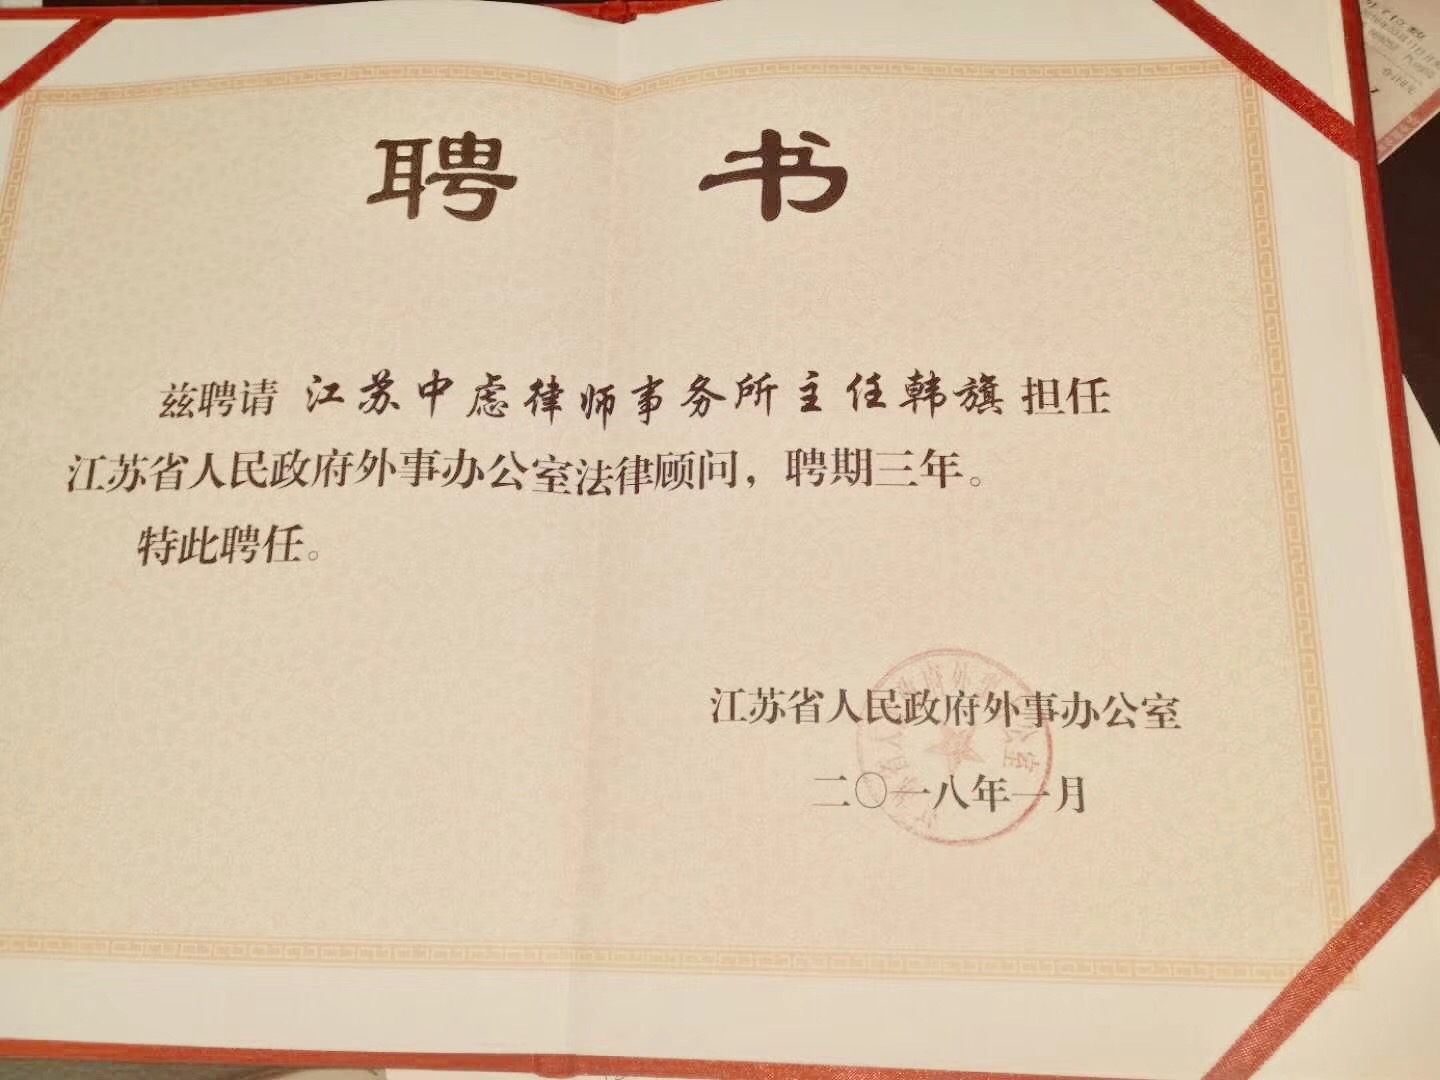 聘 书
兹聘请 江苏中虑律师事务所主任韩旗 担任
江苏省人民政府外事办公室法律顾问，聘期三年。
特此聘任。
江苏省人民政府外事办公室
二〇一八年一月